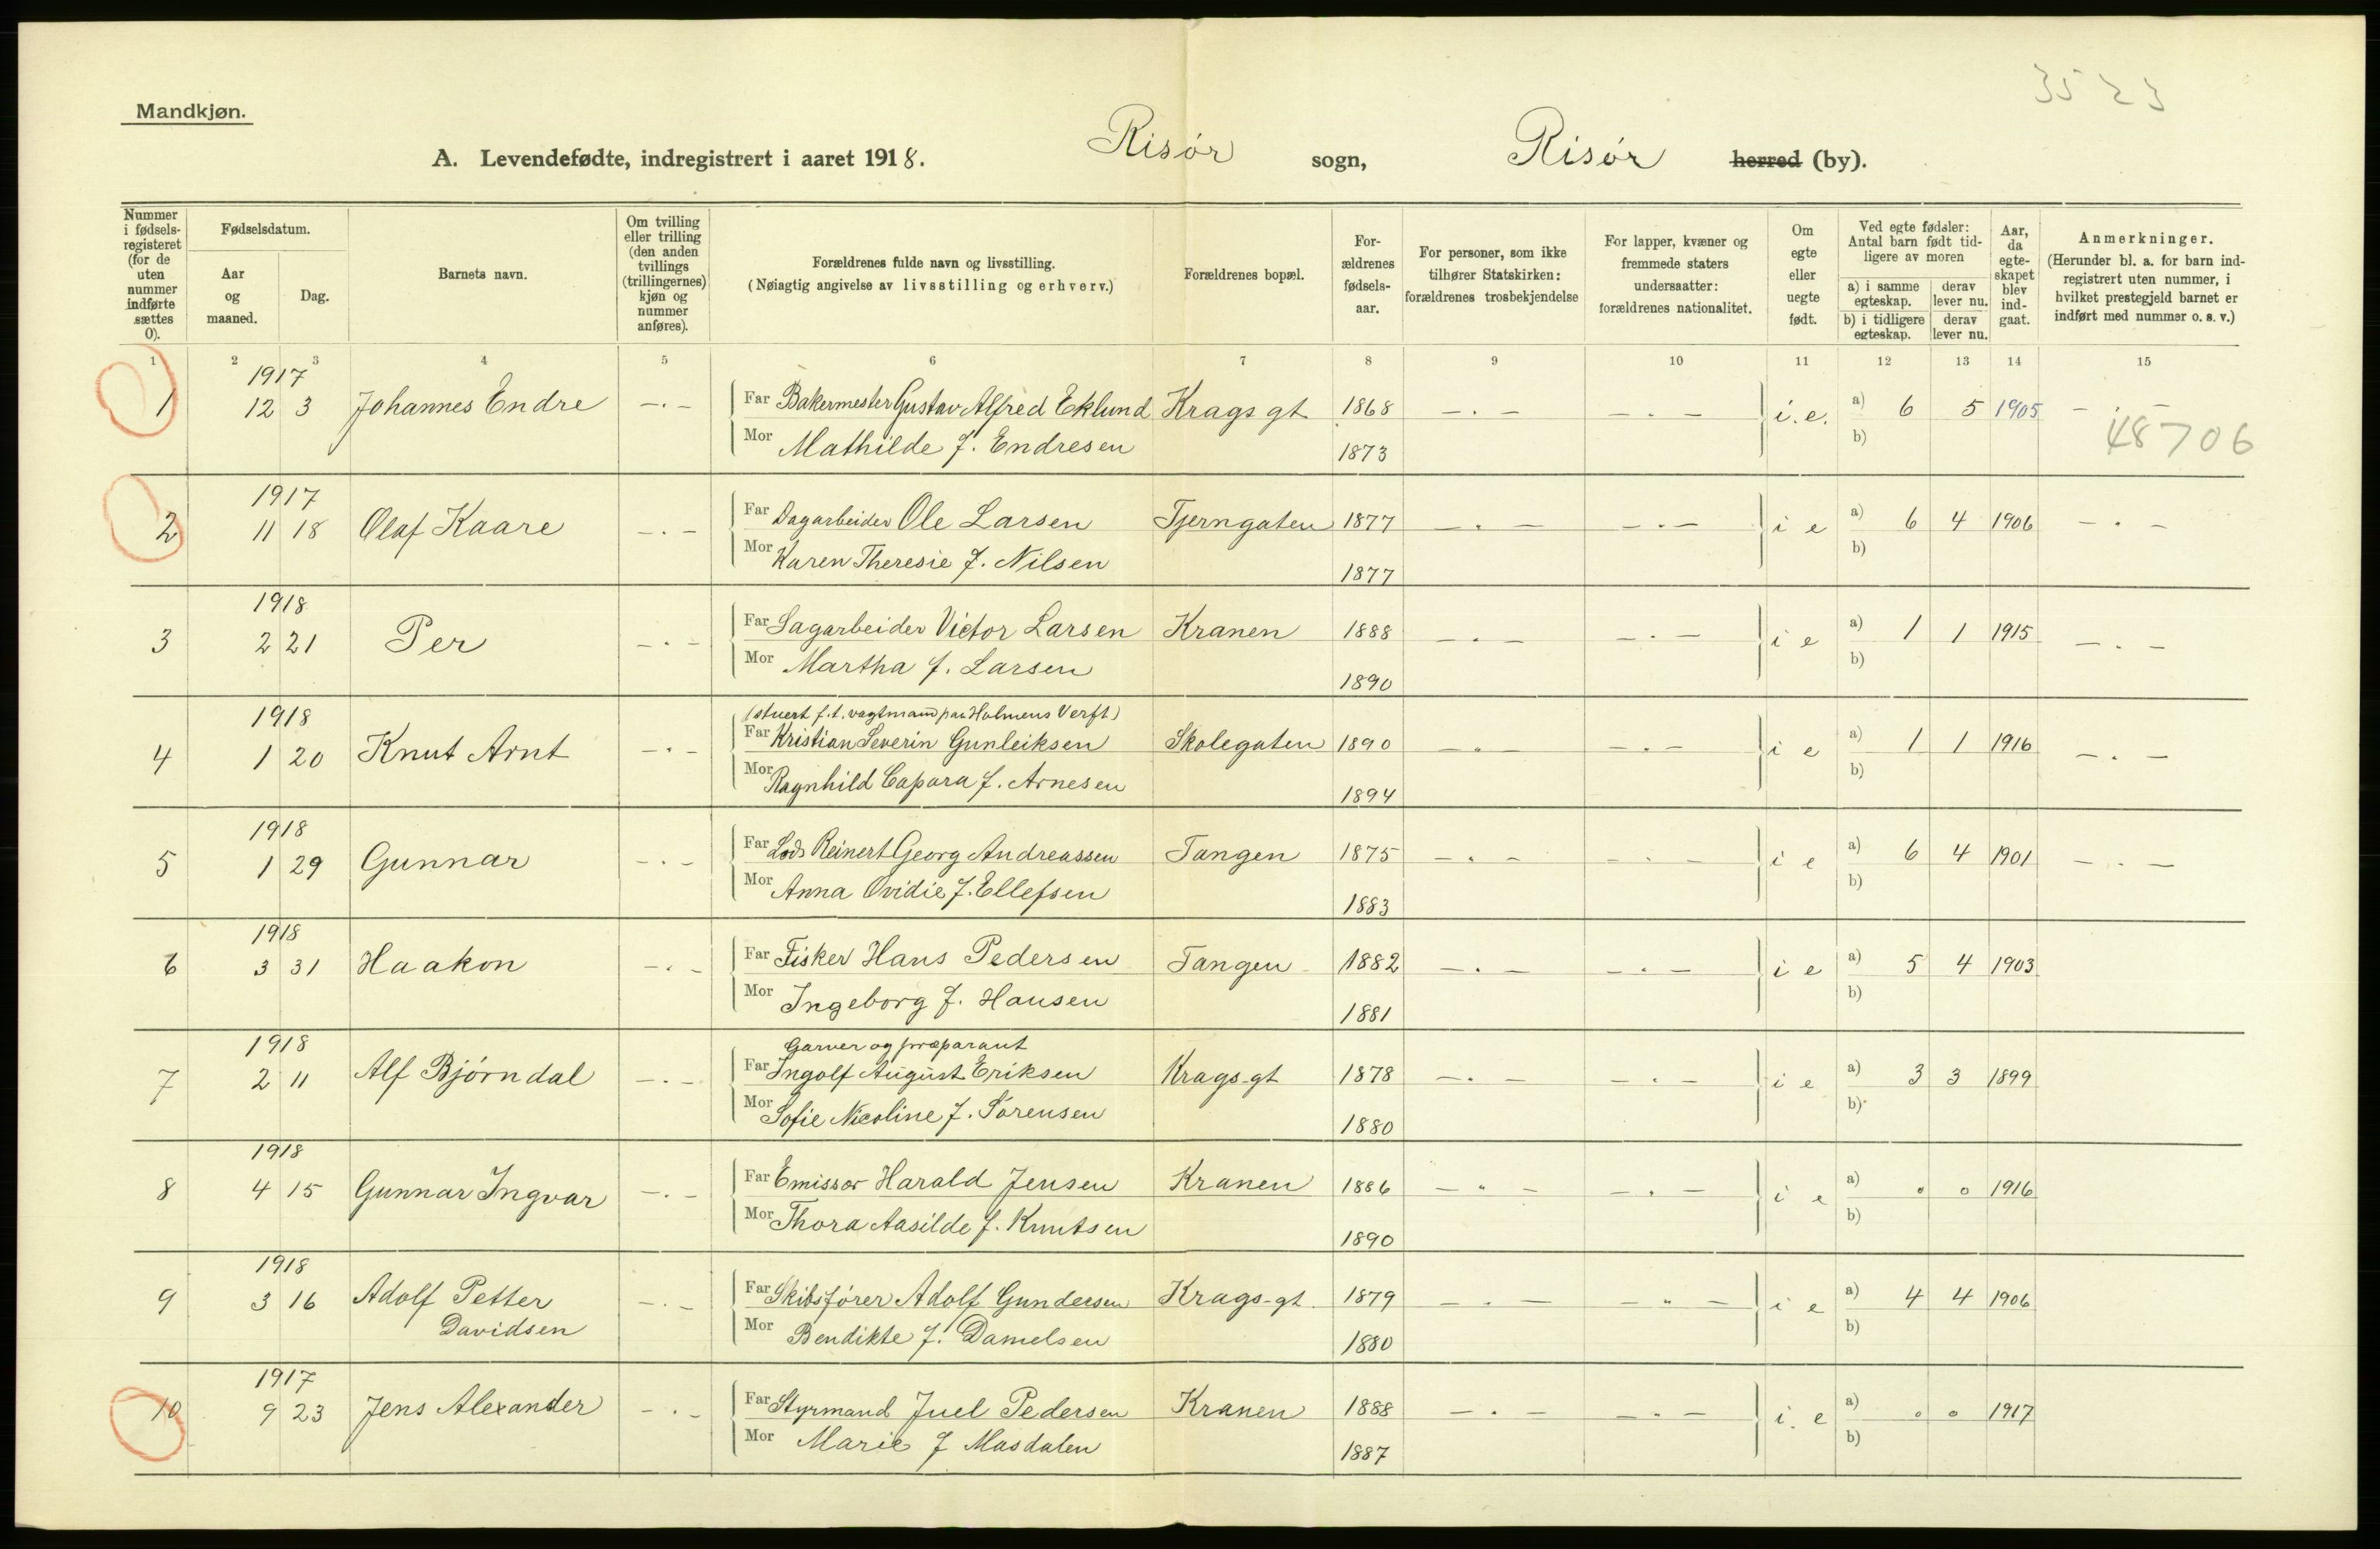 3523
Mandkjøn.
A. Levendefødte, indregistrert i aaret 1918. Risør sogn, Risør herred (by).
Nummer i fødsels-registeret (for de uten nummer indførte sættes 0).
Fødselsdatum.
Aar og maaned.
Dag.
Barnets navn.
Om tvilling eller trilling (den anden tvillings (trillingernes) kjøn og nummer anføres).
Forældrenes fulde navn og livsstilling.
(Nøiagtig angivelse av livsstilling og erhverv.)
Forældrenes bopæl.
For-ældrenes fødsels-aar.
For personer, som ikke tilhører Statskirken: forældrenes trosbekjendelse
For lapper, kvæner og fremmede staters undersaatter: forældrenes nationalitet.
Om egte eller uegte født.
Ved egte fødsler: Antal barn født tid-ligere av moren
a) i samme egteskap.
derav lever nu.
b) i tidligere egteskap.
derav lever nu.
Aar, da egte-skapet blev ind-gaat.
Anmerkninger.
(Herunder bl. a. for barn ind-registrert uten nummer, i hvilket prestegjeld barnet er indført med nummer o. s. v.)
1 2 3 4 5 6 7 8 9 10 11 12 13 14 15
1917
1 12 3 Johannes Endre -.- Far Bakermester Gustav Alfred Eklund Krags gt 1868 -.- -.- i.e. a) 6 5 1905 -.-
Mor Mathilde f. Endresen 1873 b) 48706
1917
2 11 18 Olaf Kaare -.- Far Dagarbeider Ole Larsen Tjerngaten 1877 -.- -.- i e a) 6 4 1906 -.-
Mor Karen Theresie f. Nilsen 1877 b)
1918
3 2 21 Per -.- Far Sagarbeider Victor Larsen Kranen 1888 -.- -.- i e a) 1 1 1915 -.-
Mor Martha f. Larsen 1890 b)
1918 (stuert f.t. vagtmand paa Holmens Verft)
4 1 20 Knut Arnt -.- Far Kristian Severin Gunleiksen Skolegaten 1890 -.- -.- i e a) 1 1 1916 -.-
Mor Ragnhild Capara f. Arnesen 1894 b)
1918
5 1 29 Gunnar -.- Far Lods Reinert Georg Andreassen Tangen 1875 -.- -.- i e a) 6 4 1901 -.-
Mor Anna Ovidie f. Ellefsen 1883 b)
1918
6 3 31 Haakon -.- Far Fisker Hans Pedersen Tangen 1882 -.- -.- i e a) 5 4 1903
Mor Ingeborg f. Hansen 1881 b)
1918 Garver og præparant
7 2 11 Alf Bjørndal -.- Far Ingolf August Eriksen Krags-gt 1878 -.- -.- i e a) 3 3 1899
Mor Sofie Nicoline f. Sørensen 1880 b)
1918
8 4 15 Gunnar Ingvar -.- Far Emissær Harald Jensen Kranen 1886 -.- -.- i e a) 0 0 1916
Mor Thora Aasilde f. Knutsen 1890 b)
1918
9 3 16 Adolf Petter -.- Far Skibsfører Adolf Gundersen Krags-gt. 1879 -.- -.- i e a) 4 4 1906
Davidsen Mor Bendikte f. Danielsen 1880 b)
1917
10 9 23 Jens Alexander -.- Far Styrmand Juel Pedersen Kranen 1888 -.- -.- i. e a) 0 0 1917
Mor Marie f Masdalen 1887 b)